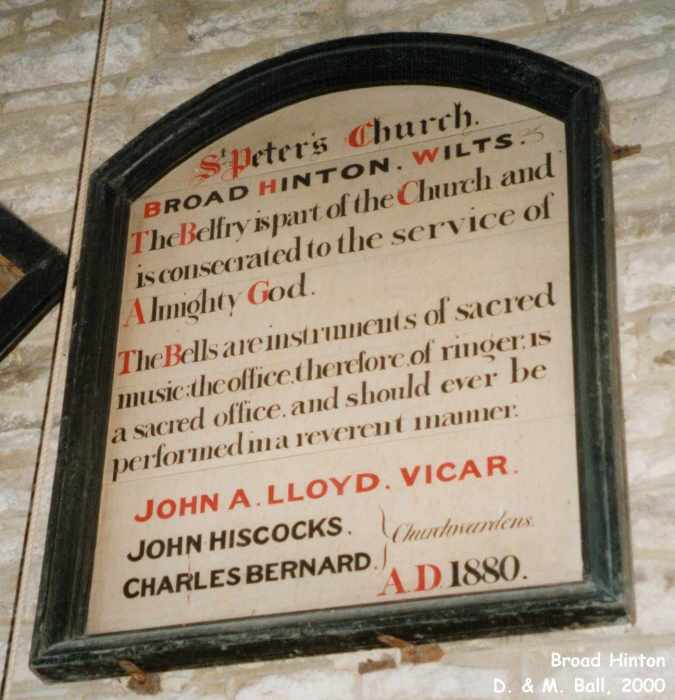 St Peter's Church.
BROAD HINTON. WILTS.
The Belfry is part of the Church and
is consecrated to the service of
Almighty God.
The Bells are instruments of sacred
music: the office, therefore, of ringer, is
a sacred office, and should ever be
performed in a reverent manner.
JOHN A. LLOYD. VICAR.
JOHN HISCOCKS.
CHARLES BERNARD.
Churchwardens.
A.D. 1880.
Broad Hinton
D. & M. Ball, 2000